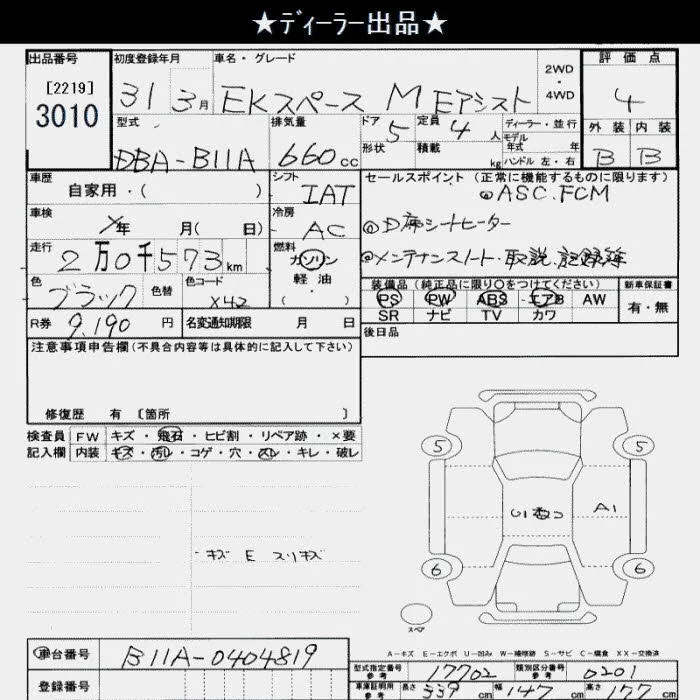 ★ディーラー出品★
出品番号 初度登録年月 車名・グレード 2WD・4WD 評価点
[2219]
3010 31 3月 EKスペース M Eアシスト 4
型式 排気量 ドア 5 定員 4人 ディーラー・並行 外装 内装
形状 積載 kg モデル年式 年 B B
DBA-B11A 660cc ハンドル 左・右
車歴 シフト セールスポイント(正常に機能するものに限ります)
自家用・( ) IAT ◎ASC.FCM
車検 年 月( 日) 冷房 AC ◎D席シートヒーター
走行 燃料 ◎メンテナンスノート・取説・記録簿
2万0千573km ガソリン
軽油・( )
色 ブラック 色替 色コード X42 装備品(純正品に限り○をつけてください) 新車保証書
PS PW ABS エアB AW 有・無
SR ナビ TV カワ
R券 9,190円 名変通知期限 月 日 後日品
注意事項申告欄(不具合内容等は具体的に記入して下さい)
修復歴 有 〔箇所 〕
検査員 FW キズ・飛石・ヒビ割・リペア跡・×要
記入欄 内装 キズ・汚レ・コゲ・穴・スレ・キレ・破レ
5 5
A1
・キズ E スリキズ
6 6
スペア
A-キズ E-エクボ U-凹み W-補修跡 S-サビ C-腐食 XX-交換済
車台番号 B11A-0404819 型式指定番号 参考 17702 類別区分番号 参考 0201
登録番号 車庫証明用 参考 長さ 339cm 幅 147cm 高さ 177cm